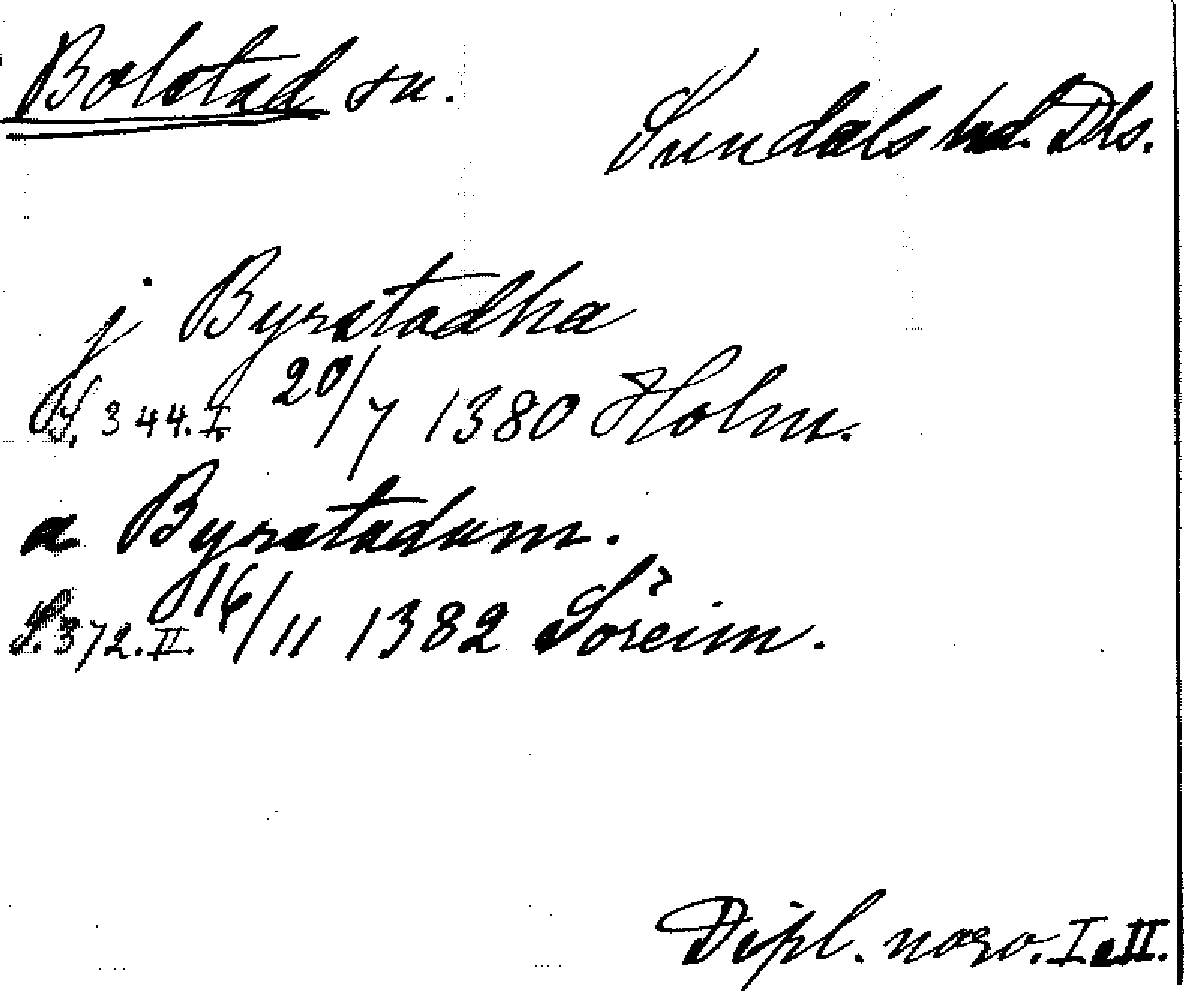 Bolstad sn.
Sundals hd. Dls.
j Byrstadha
S. 344. I. 20/7 1380 Holm.
a Byrstadum.
S. 372. II. 16/11 1382 Soreim.
Dipl. norv. I o II.